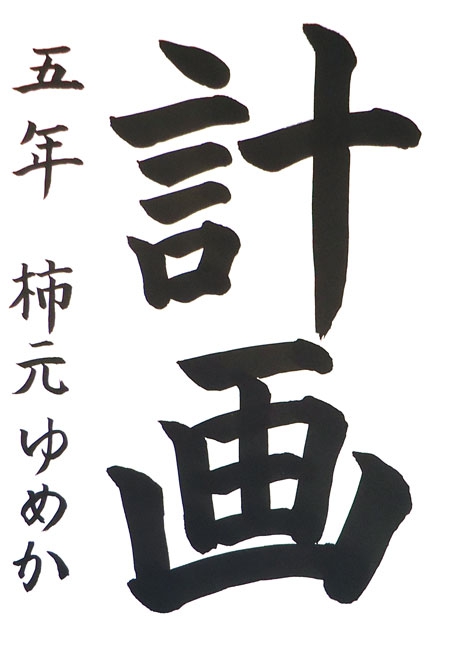 計画
五年 柿元ゆめか